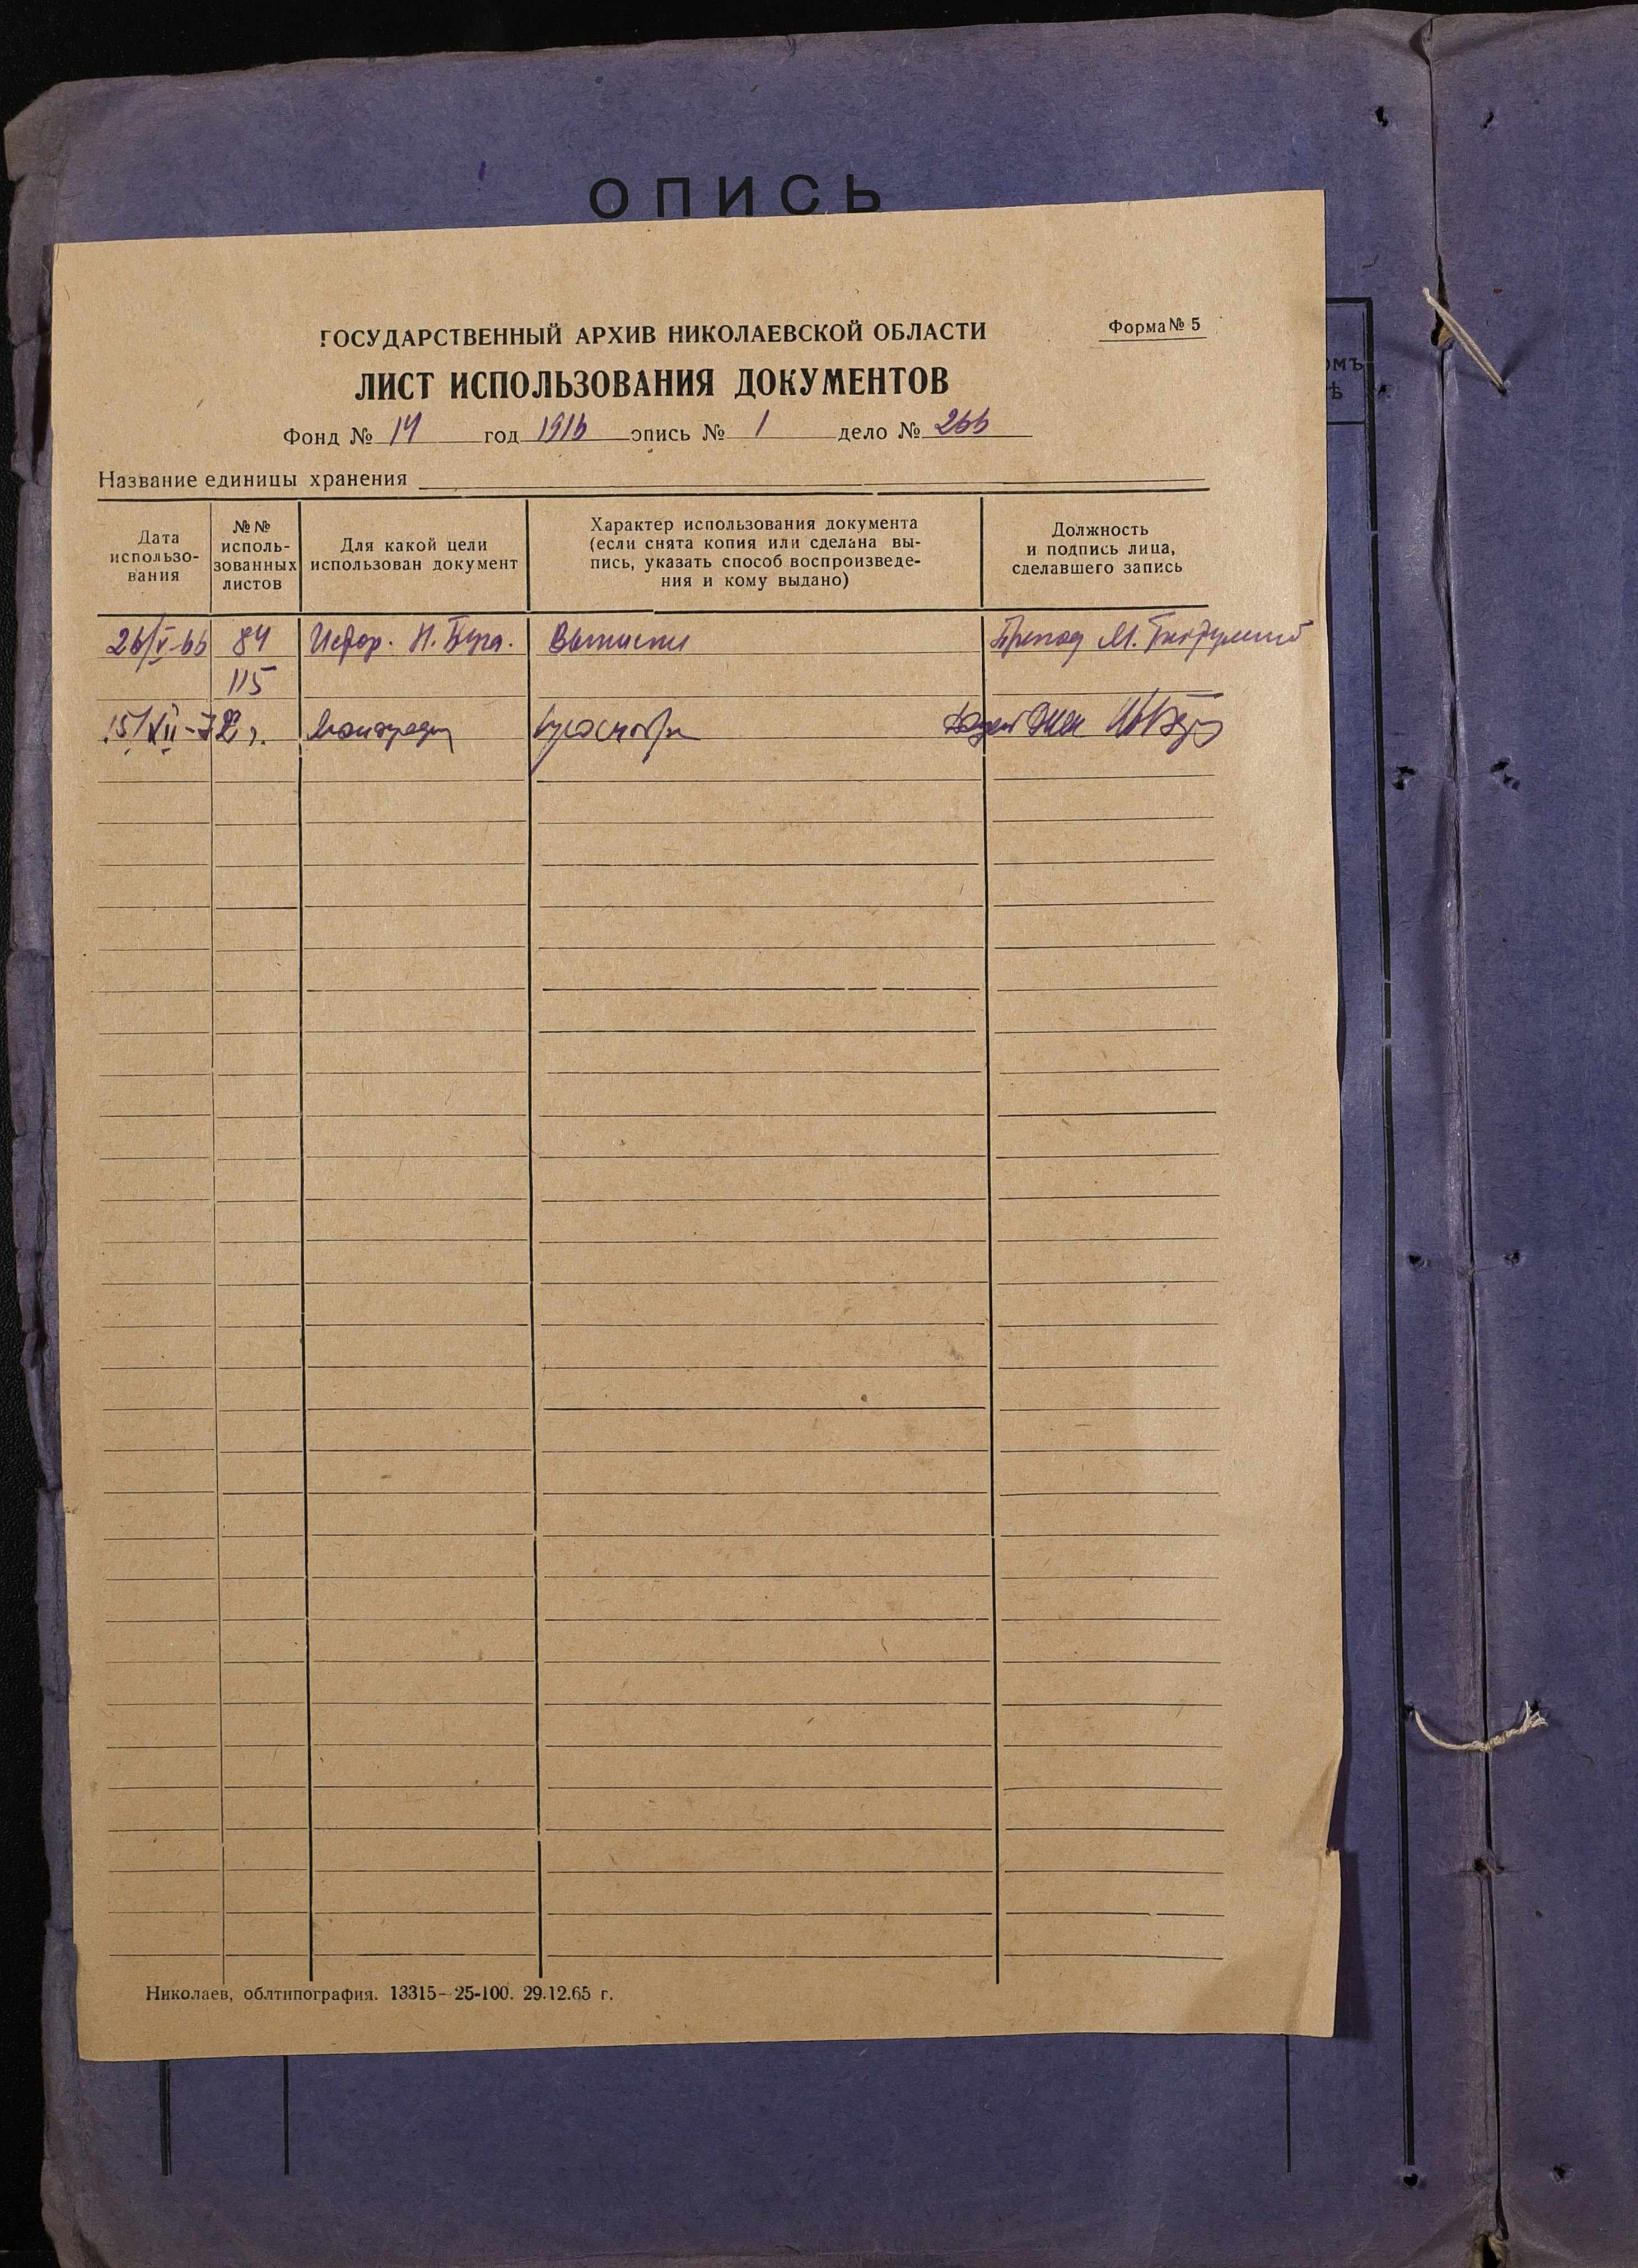 ОПИСЬ
омъ
ѣ
ГОСУДАРСТВЕННЫЙ АРХИВ НИКОЛАЕВСКОЙ ОБЛАСТИ
Форма № 5
ЛИСТ ИСПОЛЬЗОВАНИЯ ДОКУМЕНТОВ
Фонд № 14 год 1916 опись № 1 дело № 266
Название единицы хранения
Дата использо-вания
№№ исполь-зованных листов
Для какой цели использован документ
Характер использования документа
(если снята копия или сделана вы-
пись, указать способ воспроизведе-
ния и кому выдано)
Должность
и подпись лица,
сделавшего запись
26/V-66 84 Истор. Н. Буга. Выписки Препод М.
115
15/XII-72 г. Монография просмотр Доцент
Николаев, облтипография. 13315-25-100. 29.12.65 г.